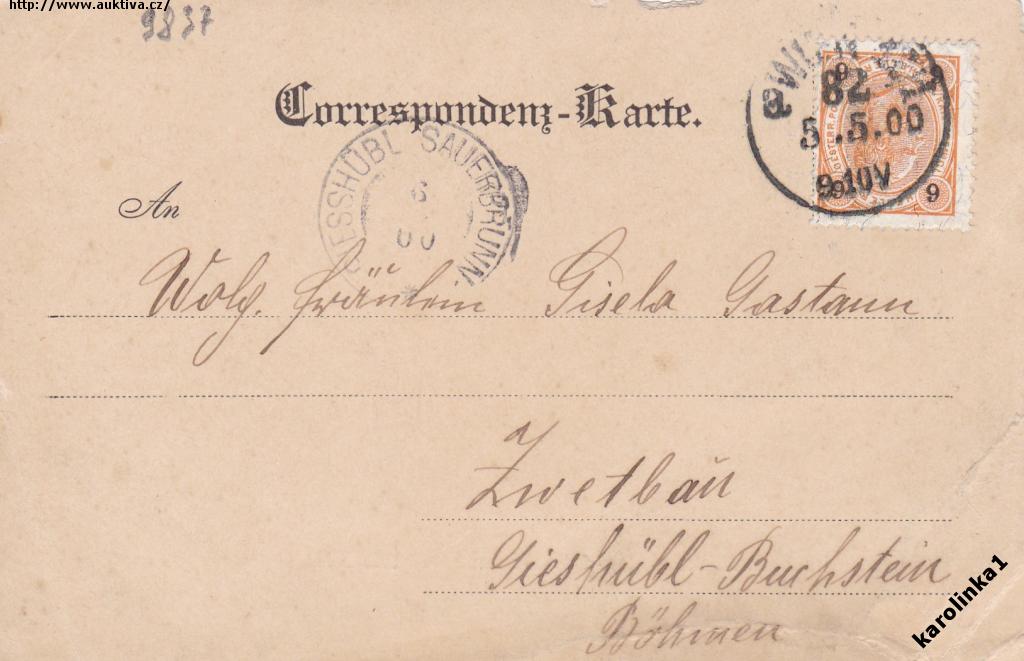 http://www.auktiva.cz/
9837
Correspondenz-Karte.
WIEN
82
5.5.00
9.10V
9 9
9 9
ESSHÜBL SAUERBRUNN.
6
00
An
Wolg. Fräulein Gisela Gastann
Zwetbau
Gieshübl-Buchstein
Böhmen
karolinka1